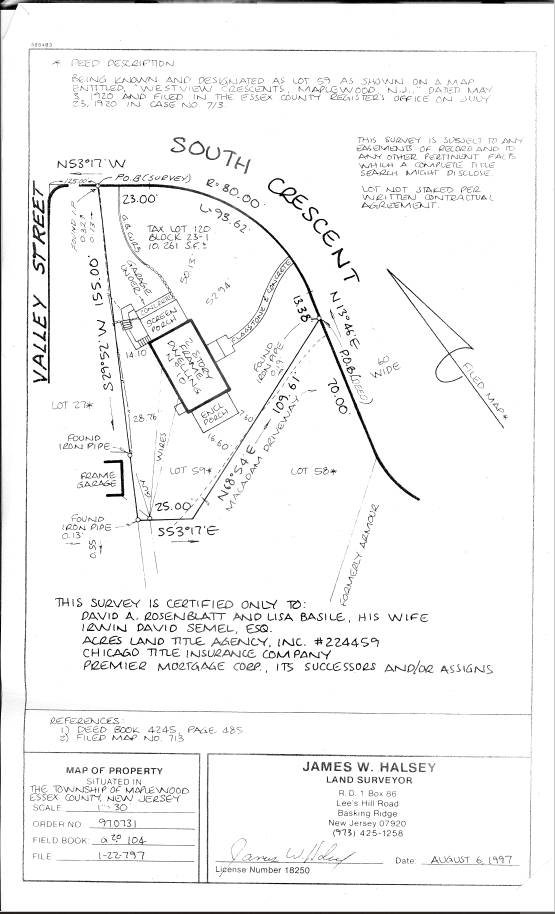 * DEED DESCRIPTION
BEING KNOWN AND DESIGNATED AS LOT 59 AS SHOWN ON A MAP
ENTITLED, "WESTVIEW CRESCENTS, MAPLEWOOD, N.J.," DATED MAY
3, 1920 AND FILED IN THE ESSEX COUNTY REGISTER'S OFFICE ON JULY
23, 1920 IN CASE NO 713.
THIS SURVEY IS SUBJECT TO ANY
EASEMENTS OF RECORD AND TO
ANY OTHER PERTINENT FACTS
WHICH A COMPLETE TITLE
SEARCH MIGHT DISCLOSE.
LOT NOT STAKED PER
WRITTEN CONTRACTUAL
AGREEMENT.
SOUTH CRESCENT
N53°17'W
P.O.B (SURVEY)
125.00'
23.00'
R=80.00'
L=93.62'
VALLEY STREET
FOUND I.P.
0.13'
S29°52'W 155.00'
G.B. CURB
TAX LOT 120
BLOCK 23-1
10,261 S.F.±
GARAGE
UNDER
50.13'
52.94'
CONCRETE
SCREEN
PORCH
FLAGSTONE & CONCRETE
STORY
FRAME
DWELLING
14.10'
13.38'
N13°46'E
P.O.B (DEED)
70.00'
60
WIDE
FILED MAP*
FOUND
IRON PIPE
0.19'
ENCL
PORCH
7.60
16.60
N68°54'E 109.61'
MACADAM DRIVEWAY
LOT 27*
28.76
WIRES
FOUND
IRON PIPE
LOT 59*
LOT 58*
FRAME
GARAGE
25.00'
FOUND
IRON PIPE
0.13'
0.55
S53°17'E
FORMERLY ARMOUR
THIS SURVEY IS CERTIFIED ONLY TO:
DAVID A. ROSENBLATT AND LISA BASILE, HIS WIFE
IRWIN DAVID SEMEL, ESQ.
ACRES LAND TITLE AGENCY, INC. #224459
CHICAGO TITLE INSURANCE COMPANY
PREMIER MORTGAGE CORP., ITS SUCCESSORS AND/OR ASSIGNS
REFERENCES:
1) DEED BOOK 4245, PAGE 485
2) FILED MAP NO. 713
MAP OF PROPERTY
SITUATED IN
THE TOWNSHIP OF MAPLEWOOD
ESSEX COUNTY, NEW JERSEY
SCALE 1"=30'
ORDER NO 970731
FIELD BOOK 104
FILE 1-22-797
JAMES W. HALSEY
LAND SURVEYOR
R.D. 1 Box 86
Lee's Hill Road
Basking Ridge
New Jersey 07920
(973) 425-1258
James W. Halsey
License Number 18250
Date: AUGUST 6, 1997